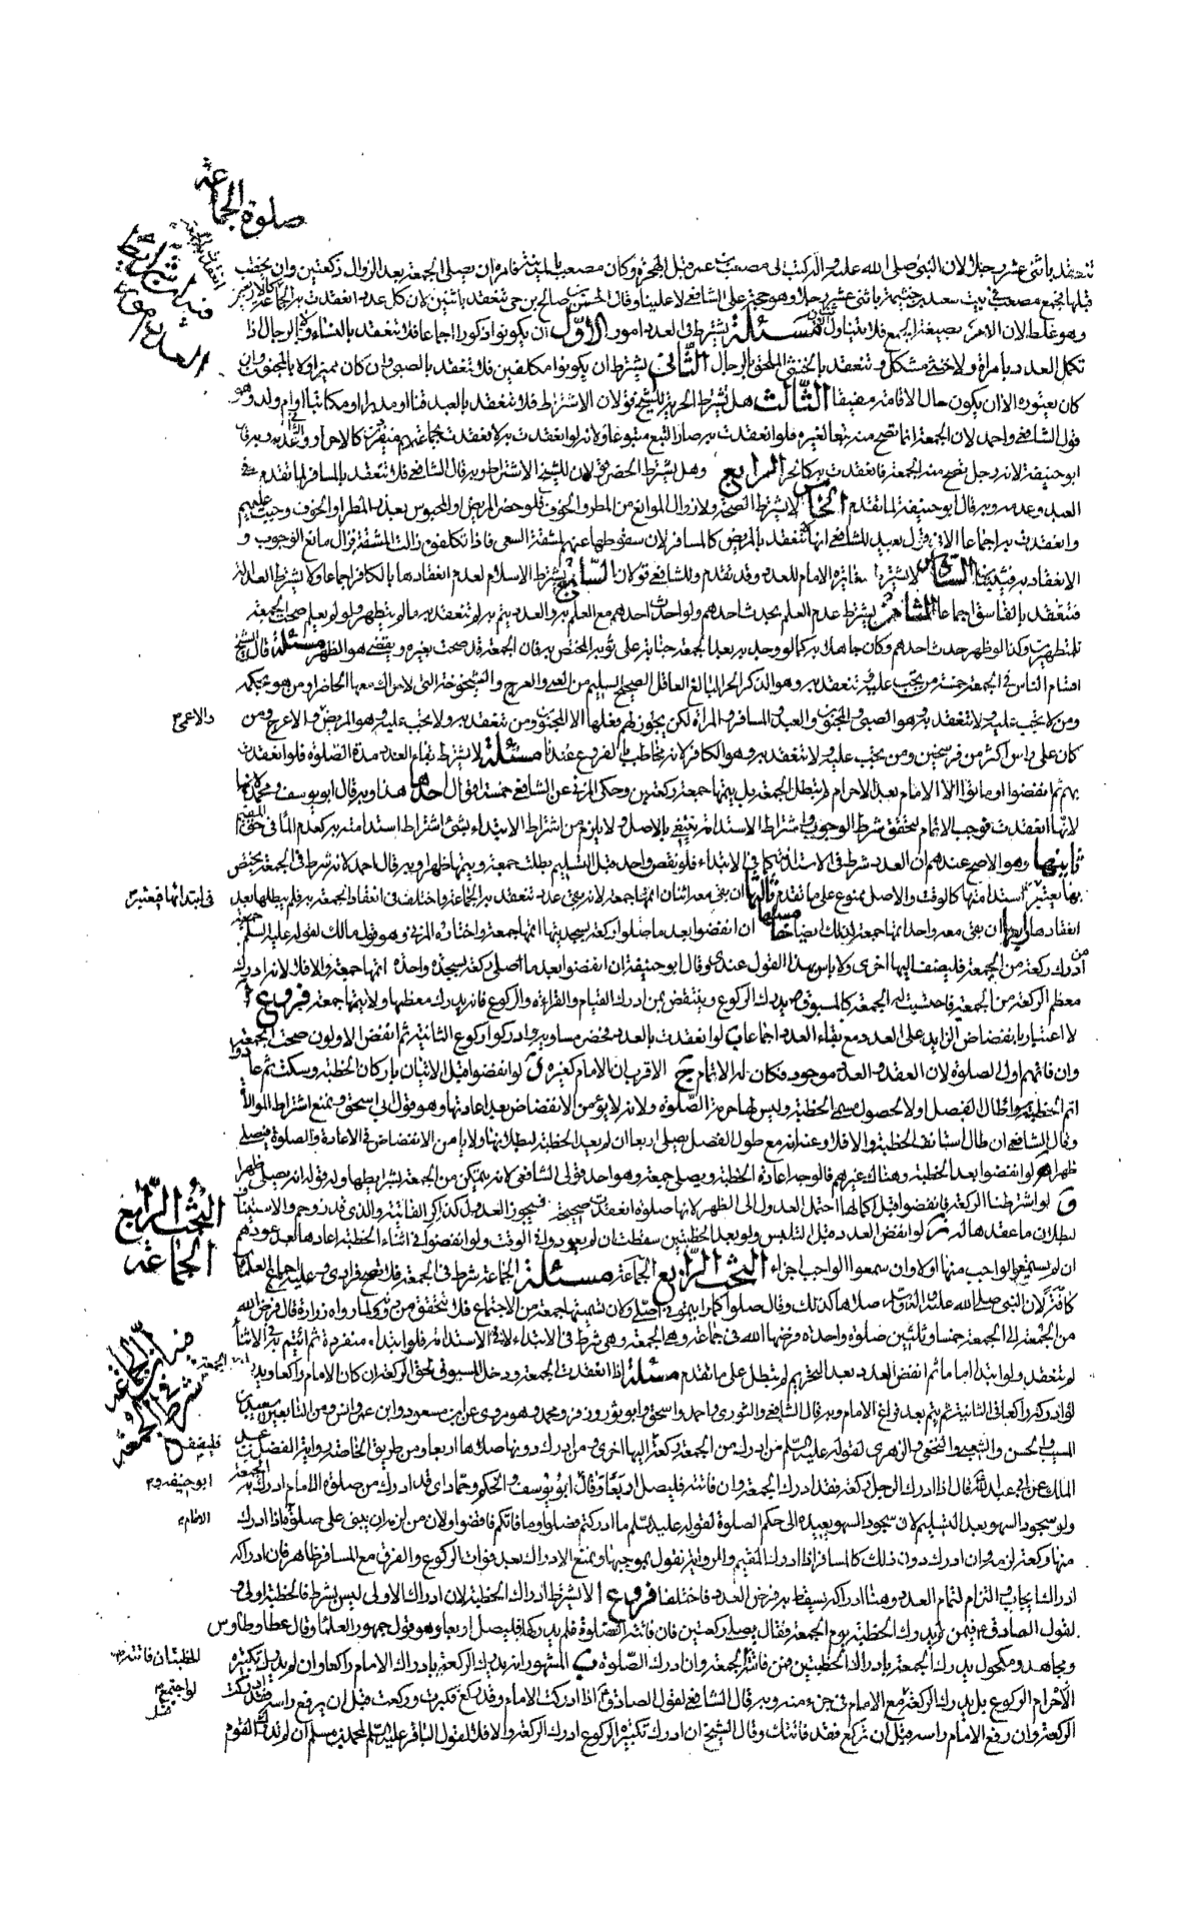 صلوة الجماعة
تنعقد باثنى عشر رجلا لان النبى صلى الله عليه واله كتب الى مصعب بن عمير قبل الهجرة وكان مصعب بالمدينة فامره ان يصلى الجمعة بعد الزوال ركعتين وان يخطب
قبلها فجمع مصعب فى بيت سعد بن خثيمة باثنى عشر رجلا وهو حجة على الشافعى لا علينا وقال الحسن بن صالح بن حى تنعقد باثنين لان كل عدد انعقدت به الجماعة
وهو غلط لان الامر بصيغة الجمع فلا يتناول مسئلة يشترط فى العدد امور الاول ان يكونوا ذكورا اجماعا فلا تنعقد بالنساء ولا بالرجال اذا
تكمل العدد بامراة ولا خنثى مشكل وتنعقد بالخنثى الملحق بالرجال الثانى يشترط ان يكونوا مكلفين فلا تنعقد بالصبى وان كان مميزا ولا بالمجنون وان
كان يعتوره الا ان يكون حال الاقامة مفيقا الثالث هل تشترط الحرية للشيخ قولان الاشتراط فلا تنعقد بالعبد قنا او مدبرا او مكاتبا او ام ولد وهو
قول الشافعى واحمد لان الجمعة انما تصح منه تبعا لغيره فلو انعقدت به صار التبع متبوعا ولانه لو انعقدت به لانعقدت بجماعتهم منفردين كالاحرار والثانى عدمه وبه قال
ابو حنيفة لانه رجل يصح منه الجمعة فانعقدت به كالحر الرابع وهل يشترط الحضر للشيخ الاشتراط وبه قال الشافعى فلا تنعقد بالمسافر لما تقدم فى
العبد وعدمه وبه قال ابو حنيفة لما تقدم الخامس لا يشترط الصحة ولا زوال الموانع من المطر والخوف فلو حضر المريض والمحبوس بعذر المطر او الخوف وجبت عليهم
وانعقدت بهم اجماعا الا فى قول بعيد للشافعى انها لا تنعقد بالمريض كالمسافر لان سقوطها عنهم لمشقة السعى فاذا تكلفوه زالت المشقة فزال مانع الوجوب و
الانعقاد السادس لا يشترط مغايرة الامام للعدد وقد تقدم وللشافعى قولان السابع يشترط الاسلام لعدم انعقادها بالكافر اجماعا ولا يشترط العدالة
فتنعقد بالفاسق اجماعا الثامن يشترط عدم العلم بحدث احدهم ولو احدث احدهم مع العلم به والعدد يتم به لم تنعقد به ما لم يتطهر ولو لم يعلم صحت الجمعة
للمتطهرين وكذا لو ظهر حدث احدهم وكان جاهلا به كما لو وجد بعد الجمعة جنابة على ثوبه المختص به فان الجمعة قد صحت لغيره ويقضى هو الظهر مسئلة قال الشيخ
اقسام الناس فى الجمعة خمسة من تجب عليه وتنعقد به وهو الذكر الحر البالغ العاقل الصحيح السليم من العمى والعرج والشيخوخة التى لا حراك معها الحاضر او من هو بحكمه
ومن لا تجب عليه ولا تنعقد به وهو الصبى والمجنون والعبد والمسافر والمراة لكن يجوز لهم فعلها الا المجنون ومن تنعقد به ولا تجب عليه وهو المريض والاعرج ومن
والاعمى م
كان على راس اكثر من فرسخين ومن تجب عليه ولا تنعقد به وهو الكافر لانه مخاطب بالفروع عندنا مسئلة لا يشترط بقاء العدد مدة الصلوة فلو انعقدت
بهم ثم انفضوا او ماتوا الا الامام بعد الاحرام لم تبطل الجمعة بل يتمها جمعة ركعتين وحكى المزنى عن الشافعى خمسة اقوال احدها هذا وبه قال ابو يوسف ومحمد
لانها انعقدت فوجب الاتمام لتحقق شرط الوجوب واشتراط الاستدامة ينتفى بالاصل ولا يلزم من اشتراط الابتداء بشئ اشتراط استدامته به كعدم الماء فى حق المتيمم
ثانيها وهو الاصح عندهم ان العدد شرط فى الاستدامة كما فى الابتداء فلو نقص واحد قبل التسليم بطلت جمعة ويتمها ظهرا وبه قال احمد لانه شرط فى الجمعة يختص
بها يعتبر استدامتها كالوقت والاصل ممنوع على ما تقدم ثالثها ان بقى معه اثنان اتمها جمعة لانه بقى عدد تنعقد به الجماعة واختلف فى انعقاد الجمعة به فلم يبطلها بعد
فى ابتدائها فيعتبر م
انعقادها رابعها ان بقى معه واحد اتمها جمعة لذلك ايضا خامسها ان انفضوا بعد ما صلوا ركعة بسجدتيها اتمها جمعة واختاره المزنى وهو قول مالك لقوله عليه السلم
من ادرك ركعة من الجمعة فليضف اليها اخرى ولا باس بهذا القول عندى وقال ابو حنيفة ان انفضوا بعد ما صلى ركعة بسجدة واحدة اتمها جمعة والا فلا لانه ادرك
معظم الركعة من الجمعة فاحتسبت له الجمعة كالمسبوق يدرك الركوع وينتقض بمن ادرك القيام والقراءة والركوع فانه يدرك معظمها ولا يتمها جمعة فروع ا
لا اعتبار بانفضاض الزايد على العدد مع بقاء العدد اجماعا ب لو انعقدت بالعدد فحضر مساويه وادركوا ركوع الثانية ثم انفض الاولون صحت الجمعة
وان فاتهم اول الصلوة لان العقد والعدد موجود فكان له الاتمام ج الاقرب ان الامام كغيره د لو انفضوا قبل الاتيان باركان الخطبة وسكت ثم عادوا
اتم الخطبة سواء طال الفصل او لا لحصول مسمى الخطبة وليس لها حرمة الصلوة ولانه لا يؤمن الانفضاض بعد اعادتها وهو قول ابى اسحق ونمنع اشتراط الموالاة
وقال الشافعى ان طال استانف الخطبة والا فلا وعنه انه مع طول الفصل يصلى اربعا ان لم يعد الخطبة لبطلانها ولا يامن الانفضاض فى الاعادة والصلوة فيصلى
ظهرا ه لو انفضوا بعد الخطبة وهناك غيرهم فالوجه اعادة الخطبة ويصلى جمعة وهو احد قولى الشافعى لانه يتمكن من الجمعة بشرايطها وله قول انه يصلى ظهرا
و لو اشترطنا الركعة فانفضوا قبل كمالها احتمل العدول الى الظهر لانها صلوة انعقدت صحيحة فيجوز العدول كذاكر الفائتة والذى قد زوحم والاستيناف
لبطلان ما عقدها له ز لو انفض العدد قبل التلبس ولو بعد الخطبتين سقطت ان لم يعودوا فى الوقت ولو انفضوا فى اثناء الخطبة اعادها بعد عودهم
ان لم يسمعوا الواجب منها اولا وان سمعوا الواجب اجزاء البحث الرابع الجماعة مسئلة الجماعة شرط فى الجمعة فلا تصح فرادى وعليه اجماع العلماء
كافة لان النبى صلى الله عليه واله صلاها كذلك وقال صلوا كما رايتمونى اصلى وكان تسميتها جمعة من الاجتماع فلا تتحقق من دونه ولما رواه زرارة قال فرض الله
من الجمعة الى الجمعة خمسا وثلثين صلوة واحدة فرضها الله فى جماعة وهى الجمعة وهى شرط فى الابتداء لا فى الاستدامة فلو ابتداء منفردا ثم ائتم به فى الاثناء
لم تنعقد ولو ابتداء اماما ثم انفض العدد بعد التحريم لم تبطل على ما تقدم مسئلة اذا انعقدت الجمعة ودخل المسبوق لحق الركعة ان كان الامام راكعا ويدرك الجمعة
لو ادركه راكعا فى الثانية ثم يتم بعد فراغ الامام وبه قال الشافعى والثورى واحمد واسحق وابو ثور وزفر ومحمد وهو مروى عن ابن مسعود وابن عمر وانس ومن التابعين سعيد بن
المسيب والحسن والشعبى والنخعى والزهرى لقوله عليه السلم من ادرك من الجمعة ركعة اليها اخرى ومن ادرك دونها صلاها اربعا ومن طريق الخاصة رواية الفضل بن عبد
فليضف م
الملك عن ابى عبد الله قال اذا ادرك الرجل ركعة فقد ادرك الجمعة وان فاتته فليصل اربعا وقال ابو يوسف والحكم وحماد اى قدر ادرك من صلوة الامام ادرك به الجمعة
ابو حنيفة و م
ولو سجود السهو بعد التسليم لان سجود السهو يعيده الى حكم الصلوة لقوله عليه السلم ما ادركتم فصلوا وما فاتكم فاقضوا ولان من لزمه ان يبنى على صلوة اذا ادرك
الامام م
منها ركعة لزمه وان ادرك دون ذلك كالمسافر اذا ادرك المقيم والرواية نقول بموجبها ونمنع الادراك بعد فوات الركوع والفرق مع المسافر ظاهر فان ادراكه
ادراك ايجاب والتزام لتمام العدد وهنا ادراكه يسقط به فرض العدد فاختلفا فروع ا لا يشترط ادراك الخطبة لان ادراك الاولى ليس بشرط فالخطبة اولى و
لقول الصادق فيمن لم يدرك الخطبة يوم الجمعة فقال يصلى ركعتين فان فاتته الصلوة فلم يدركها فليصل اربعا وهو قول جمهور العلماء وقال عطا وطاوس
ومجاهد ومكحول يدرك الجمعة بادراك الخطبتين فمن فاتته الجمعة وان ادرك الصلوة ب المشهور انه يدرك الركعة بادراك الامام راكعا وان لم يدرك تكبيرة
الخطبتان فاتته م
الاحرام الركوع بل يدرك الركعة مع الامام فى جزء منه وبه قال الشافعى لقول الصادق اذا ادركت الامام وقد ركع فكبرت وركعت قبل ان يرفع راسه فقد ادركت
لو اجتمع م
الركعة وان رفع الامام راسه قبل ان تركع فقد فاتتك وقال الشيخ ان ادرك تكبيرة الركوع ادرك الركعة والا فلا لقول الباقر عليه السلم لمحمد بن مسلم ان لم تدرك القوم
البحث الرابع
الجماعة